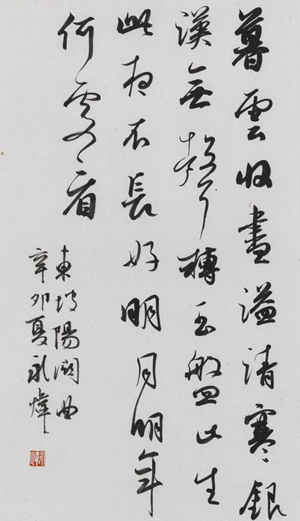 暮雲收盡溢清寒銀
漢無聲轉玉盤此生
此夜不長好明月明年
何處看
東坡陽關曲
辛卯夏永煒